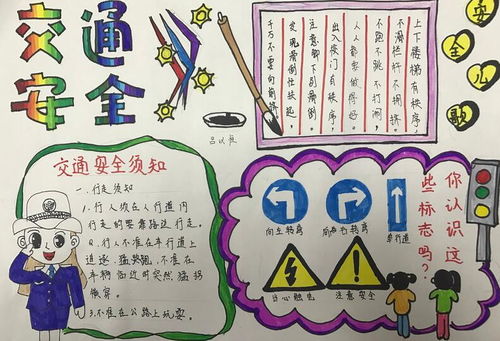 交通
安全
安全儿歌
上下楼梯有秩序，
不滑栏杆不拥挤。
不跑不跳不打闹，
人人都要做得好。
出入校门有秩序，
注意脚下别滑倒。
发现滑倒快扶起，
千万不要向前挤。
交通安全须知
一.行走须知
1.行人须在人行道内
行走的要靠路边行走。
2.行人不准在车行道上
追逐、猛跑，不准在
车辆临近时突然猛拐
横穿。
3.不准在公路上玩耍。
你认识这
些标志吗？
向左转弯
向右转弯
单行道
当心触电
注意安全